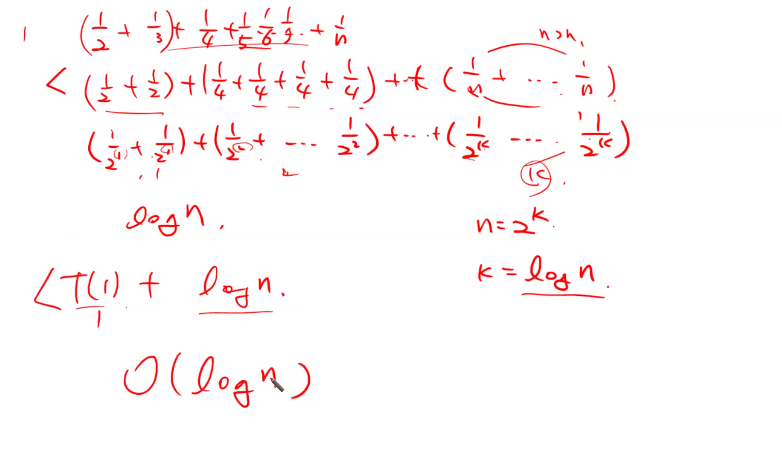 (1/2 + 1/3) + 1/4 + 1/5 1/6 1/9 .. + 1/n
n > n,
< (1/2 + 1/2) + (1/4 + 1/4 + 1/4 + 1/4) + ... + (1/n + ... 1/n)
(1/2^1 + 1/2^1) + (1/2^2 + ... 1/2^2) + ... + (1/2^k ... 1/2^k)
k
log n.
n = 2^k.
k = log n.
< T(1) + log n.
1
O(log n)